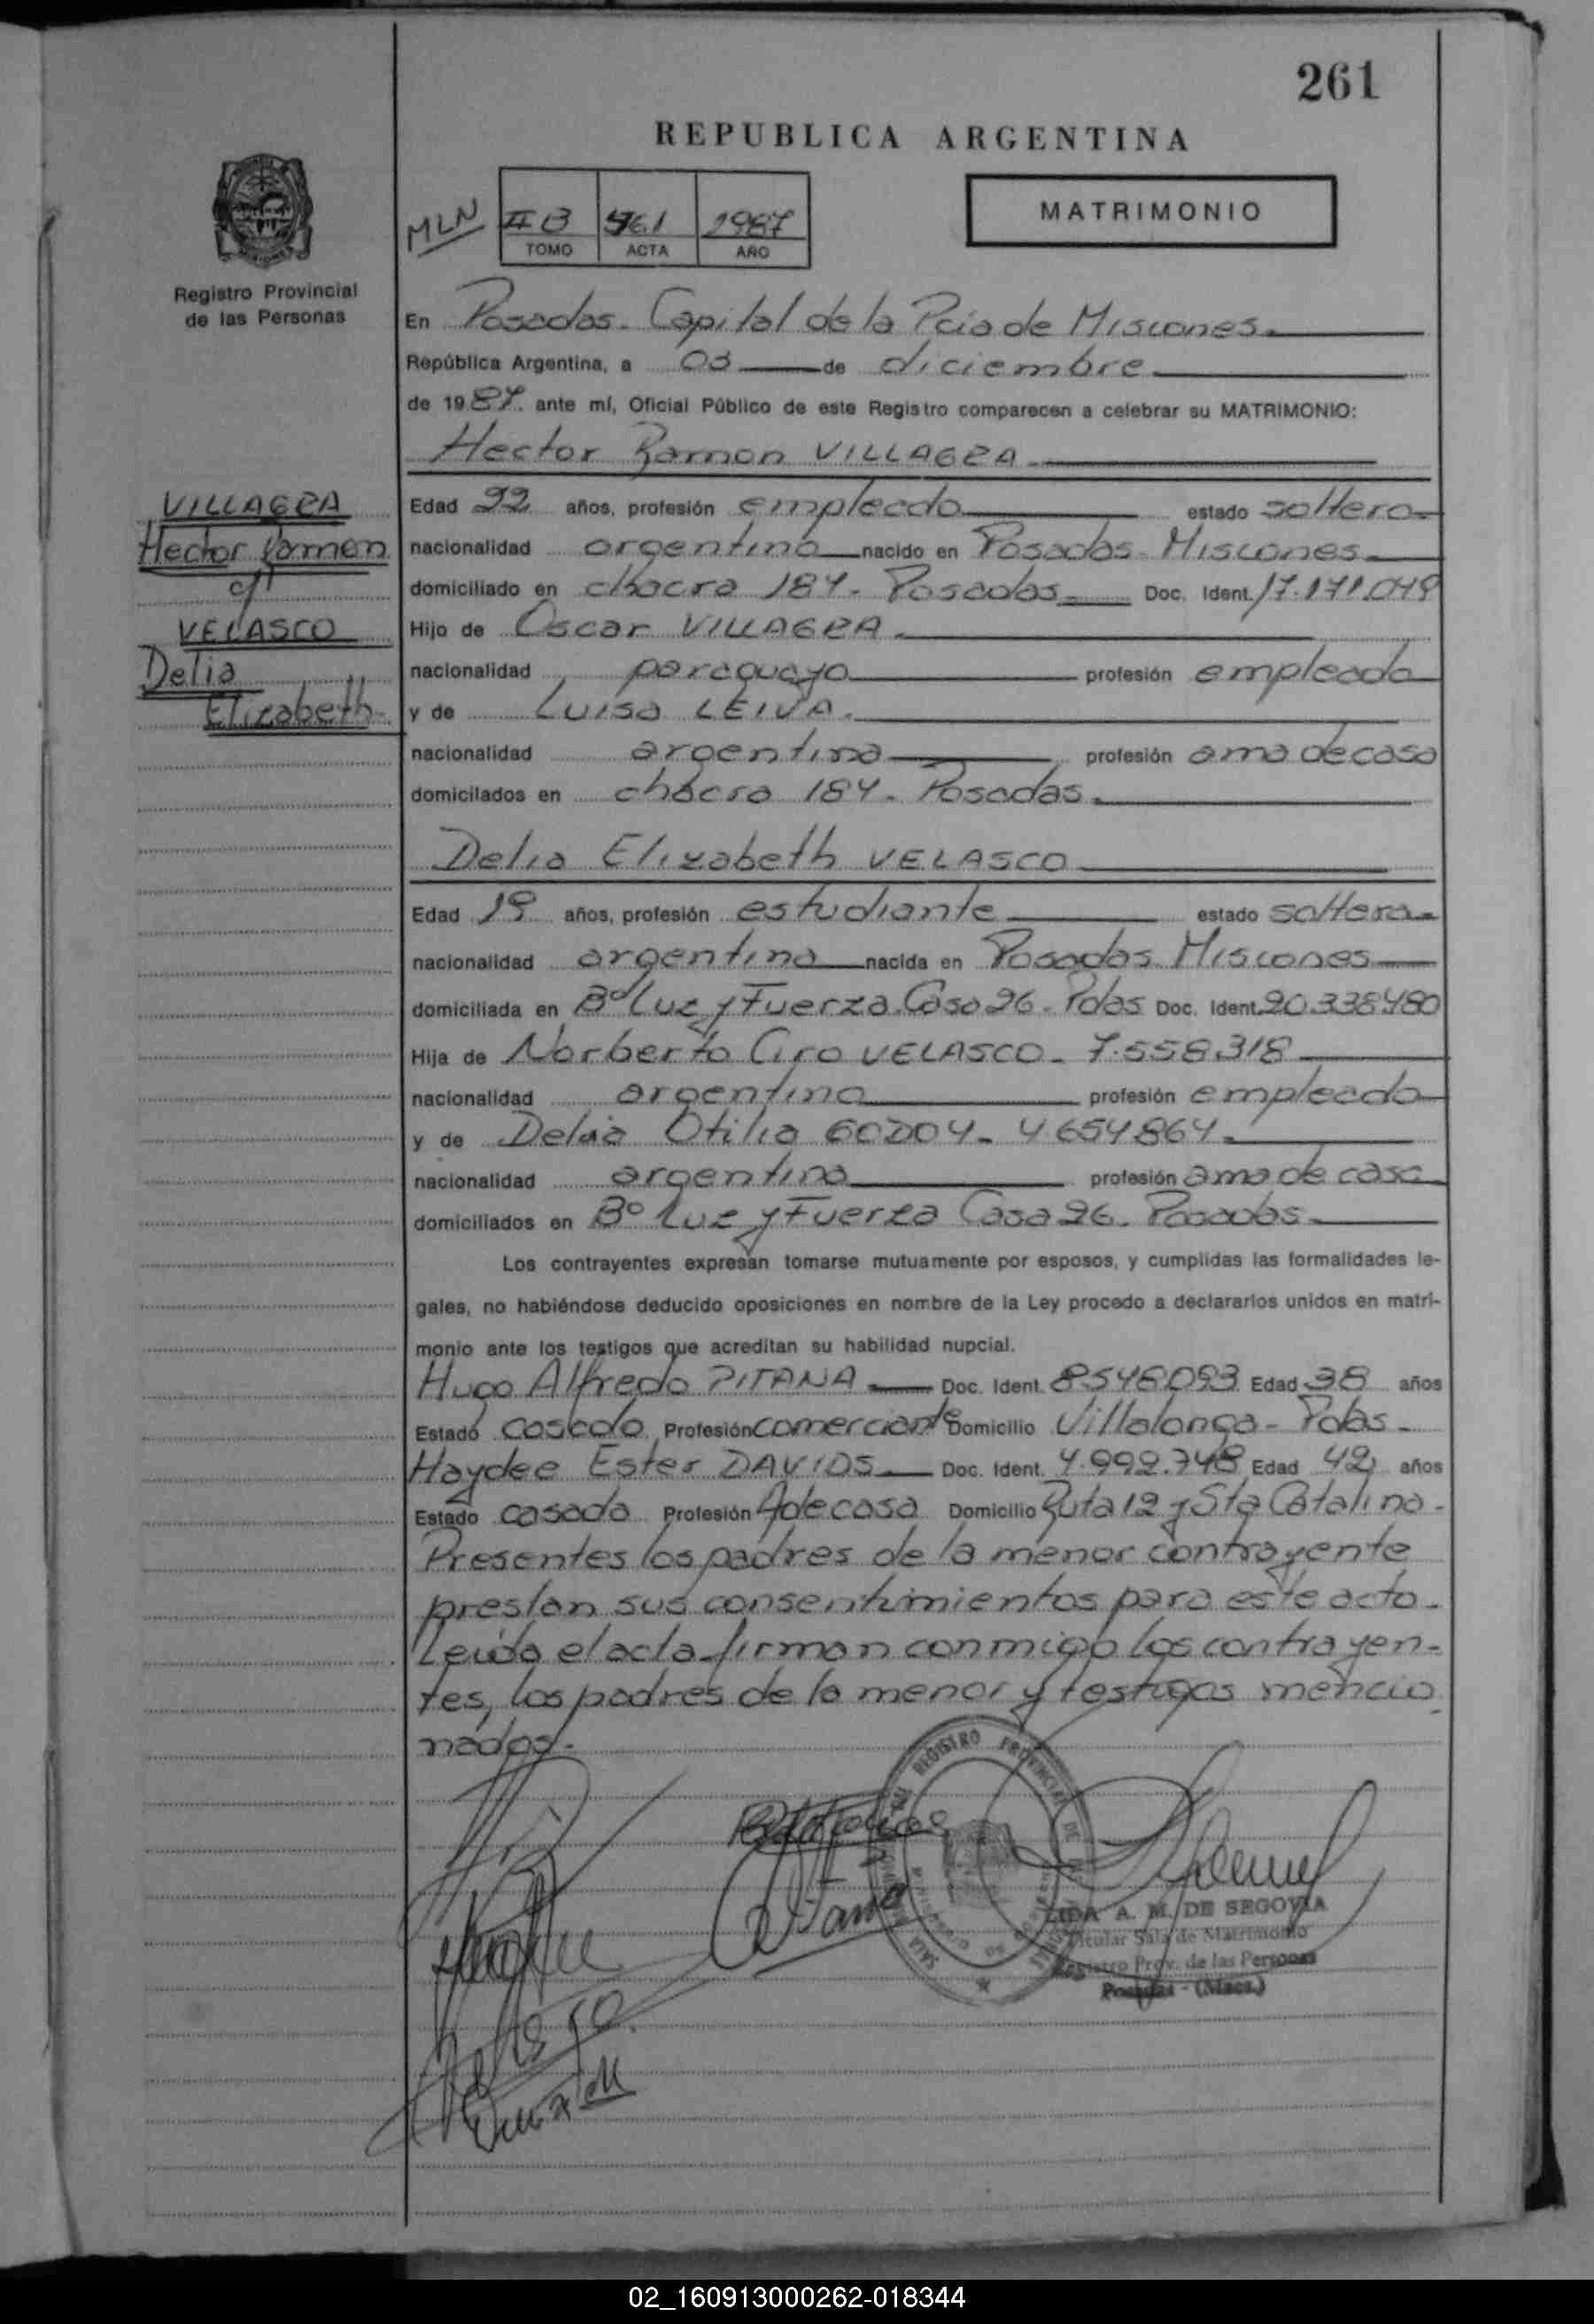 261
REPUBLICA ARGENTINA
MLN
II B 961 1987
TOMO ACTA AÑO
MATRIMONIO
Registro Provincial
de las Personas
En Posadas. Capital de la Pcia de Misiones.
República Argentina, a 03 de diciembre
de 1987. ante mí, Oficial Público de este Registro comparecen a celebrar su MATRIMONIO:
Hector Ramon VILLAGRA
VILLAGRA
Hector Ramon
c/
VELASCO
Delia
Elizabeth
Edad 22 años, profesión empleado estado soltero
nacionalidad argentina nacido en Posadas Misiones
domiciliado en chacra 184. Posadas Doc. Ident. 17.171.049
Hijo de Oscar VILLAGRA
nacionalidad paraguaya profesión empleado
y de Luisa LEIVA.
nacionalidad argentina profesión ama de casa
domicilados en chacra 184. Posadas.
Delia Elizabeth VELASCO
Edad 19 años, profesión estudiante estado soltera
nacionalidad argentina nacida en Posadas Misiones
domiciliada en B° Luz y Fuerza. Casa 26. Pdas Doc. Ident. 20.338480
Hija de Norberto Ciro VELASCO. 7.558.318
nacionalidad argentina profesión empleado
y de Delia Otilia GODOY. 4654864.
nacionalidad argentina profesión ama de casa
domiciliados en B° Luz y Fuerza Casa 26. Posadas.
Los contrayentes expresan tomarse mutuamente por esposos, y cumplidas las formalidades le-
gales, no habiéndose deducido oposiciones en nombre de la Ley procedo a declararlos unidos en matri-
monio ante los testigos que acreditan su habilidad nupcial.
Hugo Alfredo PITANA Doc. Ident. 8546093 Edad 38 años
Estado casado Profesión comerciante Domicilio Villalonga - Pdas.
Haydee Ester DAVIDS Doc. Ident. 4.992.748 Edad 42 años
Estado casada Profesión A de casa Domicilio Ruta 12 y Sta Catalina.
Presentes los padres de la menor contrayente
prestan sus consentimientos para este acto.
Leída el acta firman conmigo los contrayen-
tes, los padres de la menor y testigos mencio
nados.
REGISTRO PROVINCIAL DE
LIDA A. M. DE SEGOVIA
Titular Sala de Matrimonio
Registro Prov. de las Personas
Posadas - (Mnes.)
02_160913000262-018344